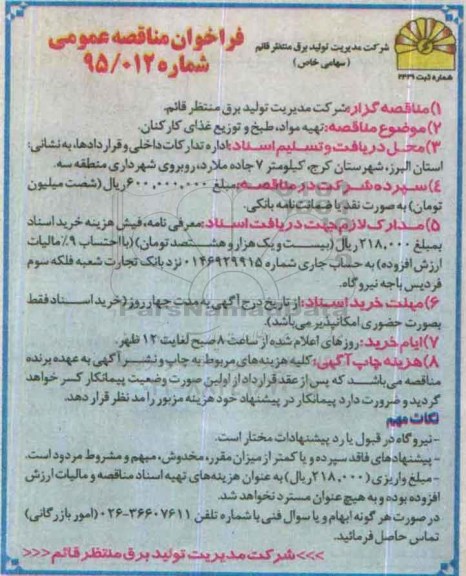 فراخوان مناقصه عمومی
شماره ۹۵/۰۱۲
شرکت مدیریت تولید برق منتظر قائم
(سهامی خاص)
شماره ثبت ۲۳۳۹
۱)مناقصه گزار:شرکت مدیریت تولید برق منتظر قائم.
۲)موضوع مناقصه:تهیه مواد، طبخ و توزیع غذای کارکنان.
۳)محل دریافت و تسلیم اسناد:اداره تدارکات داخلی و قراردادها، به نشانی:
استان البرز، شهرستان کرج، کیلومتر ۷ جاده ملارد، روبروی شهرداری منطقه سه.
۴)سپرده شرکت در مناقصه:مبلغ ۶۰۰,۰۰۰,۰۰۰ ریال (شصت میلیون
تومان) به صورت نقد یا ضمانت نامه بانکی.
۵)مدارک لازم جهت دریافت اسناد:معرفی نامه، فیش هزینه خرید اسناد
بمبلغ ۲۱۸,۰۰۰ ریال (بیست و یک هزار و هشتصد تومان) (با احتساب ۹٪ مالیات
ارزش افزوده) به حساب جاری شماره ۰۱۴۶۹۲۹۹۱۵ نزد بانک تجارت شعبه فلکه سوم
فردیس با جه نیروگاه.
۶)مهلت خرید اسناد:از تاریخ درج آگهی به مدت چهار روز (خرید اسناد فقط
بصورت حضوری امکانپذیر می باشد).
۷)ایام خرید:روزهای اعلام شده از ساعت ۸ صبح لغایت ۱۲ ظهر.
۸)هزینه چاپ آگهی:کلیه هزینه های مربوط به چاپ و نشر آگهی به عهده برنده
مناقصه می باشد که پس از عقد قرارداد از اولین صورت وضعیت پیمانکار کسر خواهد
گردید و ضرورت دارد پیمانکار در پیشنهاد خود هزینه مزبور را مد نظر قرار دهد.
نکات مهم
-نیروگاه در قبول یا رد پیشنهادات مختار است.
- پیشنهادهای فاقد سپرده و یا کمتر از میزان مقرر، مخدوش، مبهم و مشروط مردود است.
- مبلغ واریزی (۲۱۸,۰۰۰) به عنوان هزینه های تهیه اسناد مناقصه و مالیات ارزش
افزوده بوده و به هیچ عنوان مسترد نخواهد شد.
در صورت هر گونه ابهام و یا سوال فنی با شماره تلفن ۳۶۶۰۷۶۱۱-۰۲۶ (امور بازرگانی)
تماس حاصل فرمائید.
>>>شرکت مدیریت تولید برق منتظر قائم<<<